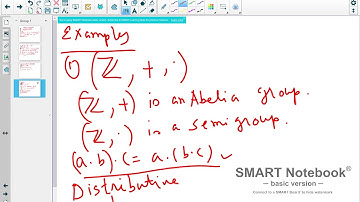 Examples
1) (ℤ, +, ·)
(ℤ, +) is an Abelia group.
(ℤ, ·) is a semigroup.
(a·b)·c = a·(b·c) ✓
Distributive
SMART Notebook®
— basic version —
Connect to a SMART Board to hide watermark